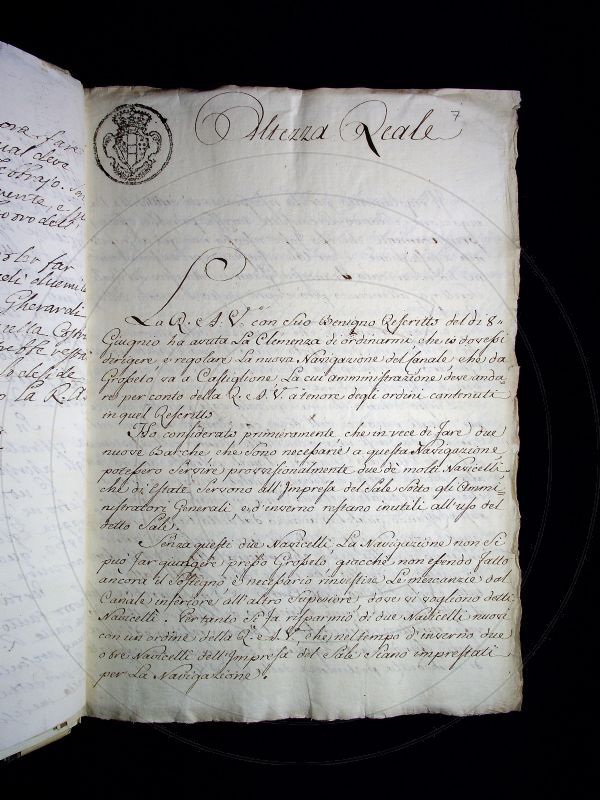 ora fare
ual deve
mente, e
uovo dell
oler far
Gherardi
nella
o la R. A.
7
Altezza Reale
La R. e A. V.ª con suo Benigno Rescritto del dì 8
Giugnio ha avuta La Clemenza di ordenarmi che io dovessi
dirigere e regolare La nuova Navigazione del fanale che da
Groseto va a Castiglione La cui amministrazione deve anda=
re per conto della R. e A. V. a tenore degli ordini contenuti
in quel Rescritto
Ho considerato primieramente che in vece di fare due
nuove Barche che sono necesarie a questa Navigazione
potessero servire provvisionalmente due de molti Navicelli
che di Estate Servono all'Impresa del Sale Sotto gli Ammi=
nistratori Generali, e d'inverno restano inutili all'uso del
detto Sale.
Senza questi due Navicelli La Navigazione non si
può far giungere preso Groseto, giacchè non esendo fatto
ancora il Sostegno è necesario investire Le mercanzie dal
Canale inferiore all'altro Superiore dove vi vogliono detti
Navicelli. Pertanto Si fa risparmio di due Navicelli nuovi
con un ordine della R. e A. V.ª che nel tempo d'inverno due
o tre Navicelli dell'Impresa del Sale Siano imprestati
per La Navigazione.